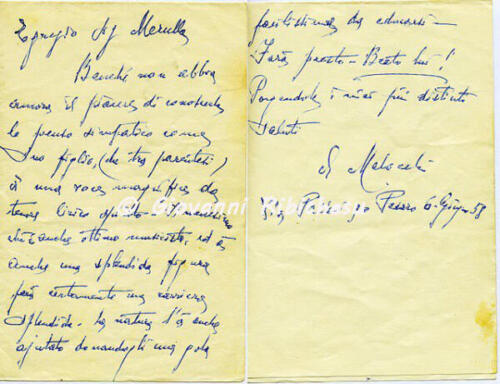 Egregio Sig Merulla
Benché non abbia
ancora il piacere di conoscerla
la penso simpatico come
Suo figlio, (che tra parentesi)
à una voce magnifica da
tenore lirico spinto -
anche ottimo musicista, ed à
anche una splendida figura
farà certamente una carriera
splendida. La natura l'à anche
aiutato donandogli una gola
facilissima da
Farà presto - Beato lui!
Porgendole i miei più distinti
saluti
A Melocchi
Pesaro 6. Giugno 58
© Giovanni